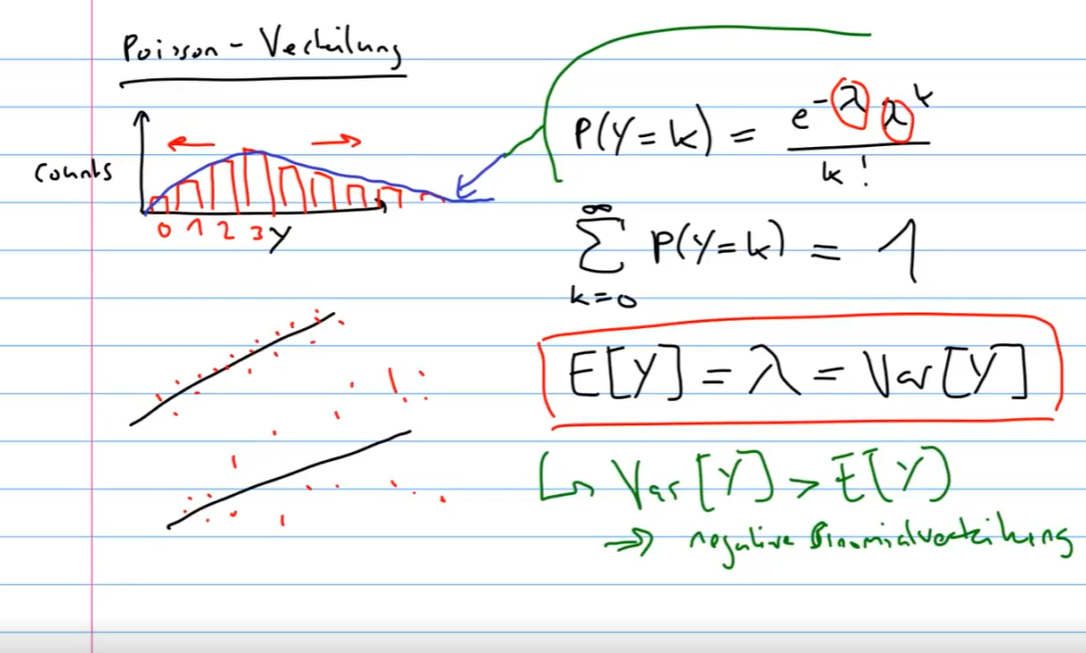 Poisson - Verteilung
counts
0 1 2 3 Y
P(Y=k) = e^-λ λ^k / k!
∞
∑ P(Y=k) = 1
k=0
E[Y] = λ = Var[Y]
↳ Var[Y] > E[Y]
⇒ negative Binomialverteilung